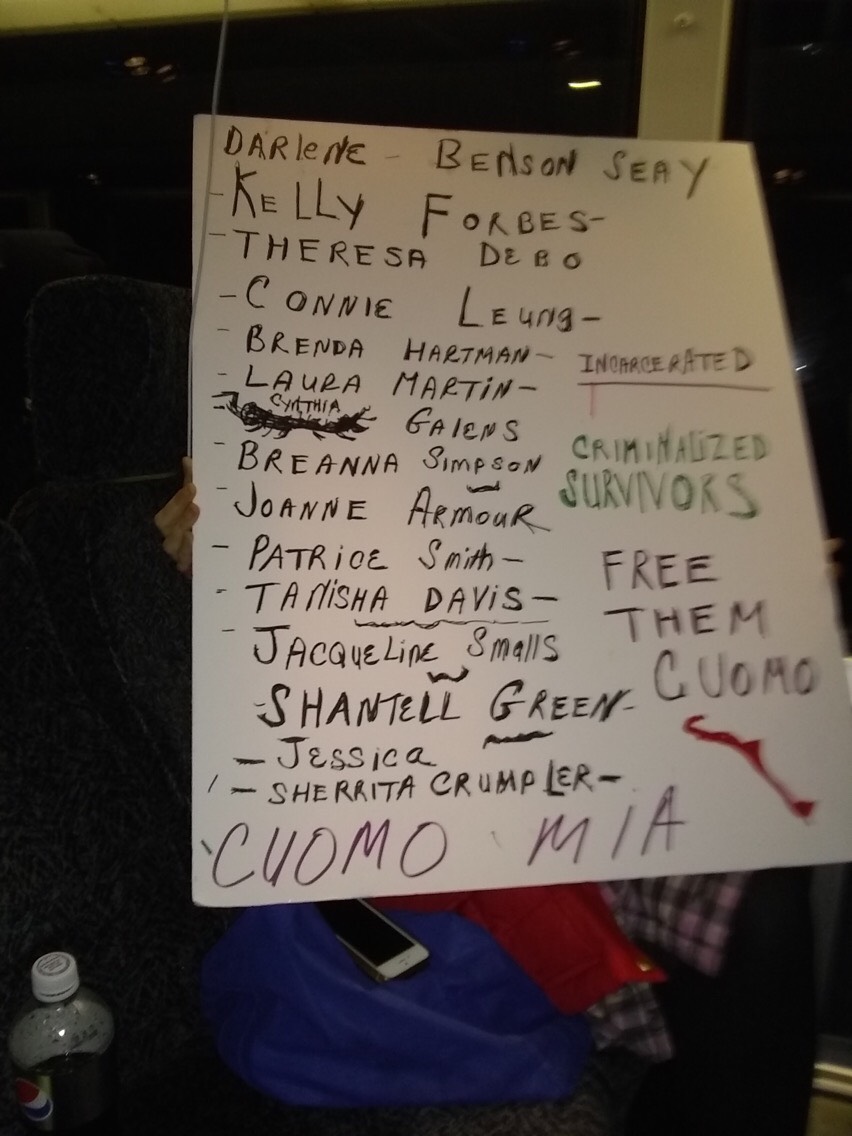 DARleNE - BENSON SEAY
- KELLY FORBES-
- THERESA DEBO
- CONNIE Leung-
- BRENDA HARTMAN-
- LAURA MARTiN-
- CYNTHIA GAIENS
- BREANNA SimpsoN
- JOANNE ARMOUR
- PATRICE Smith-
- TANISHA DAVIS-
- JACQUELINE Smalls
- SHANTELL GREEN-
- Jessica
- SHERRITA CRUMPLER-
INCARCERATED
CRIMINALIZED
SURVIVORS
FREE
THEM
CUOMO
CUOMO MIA